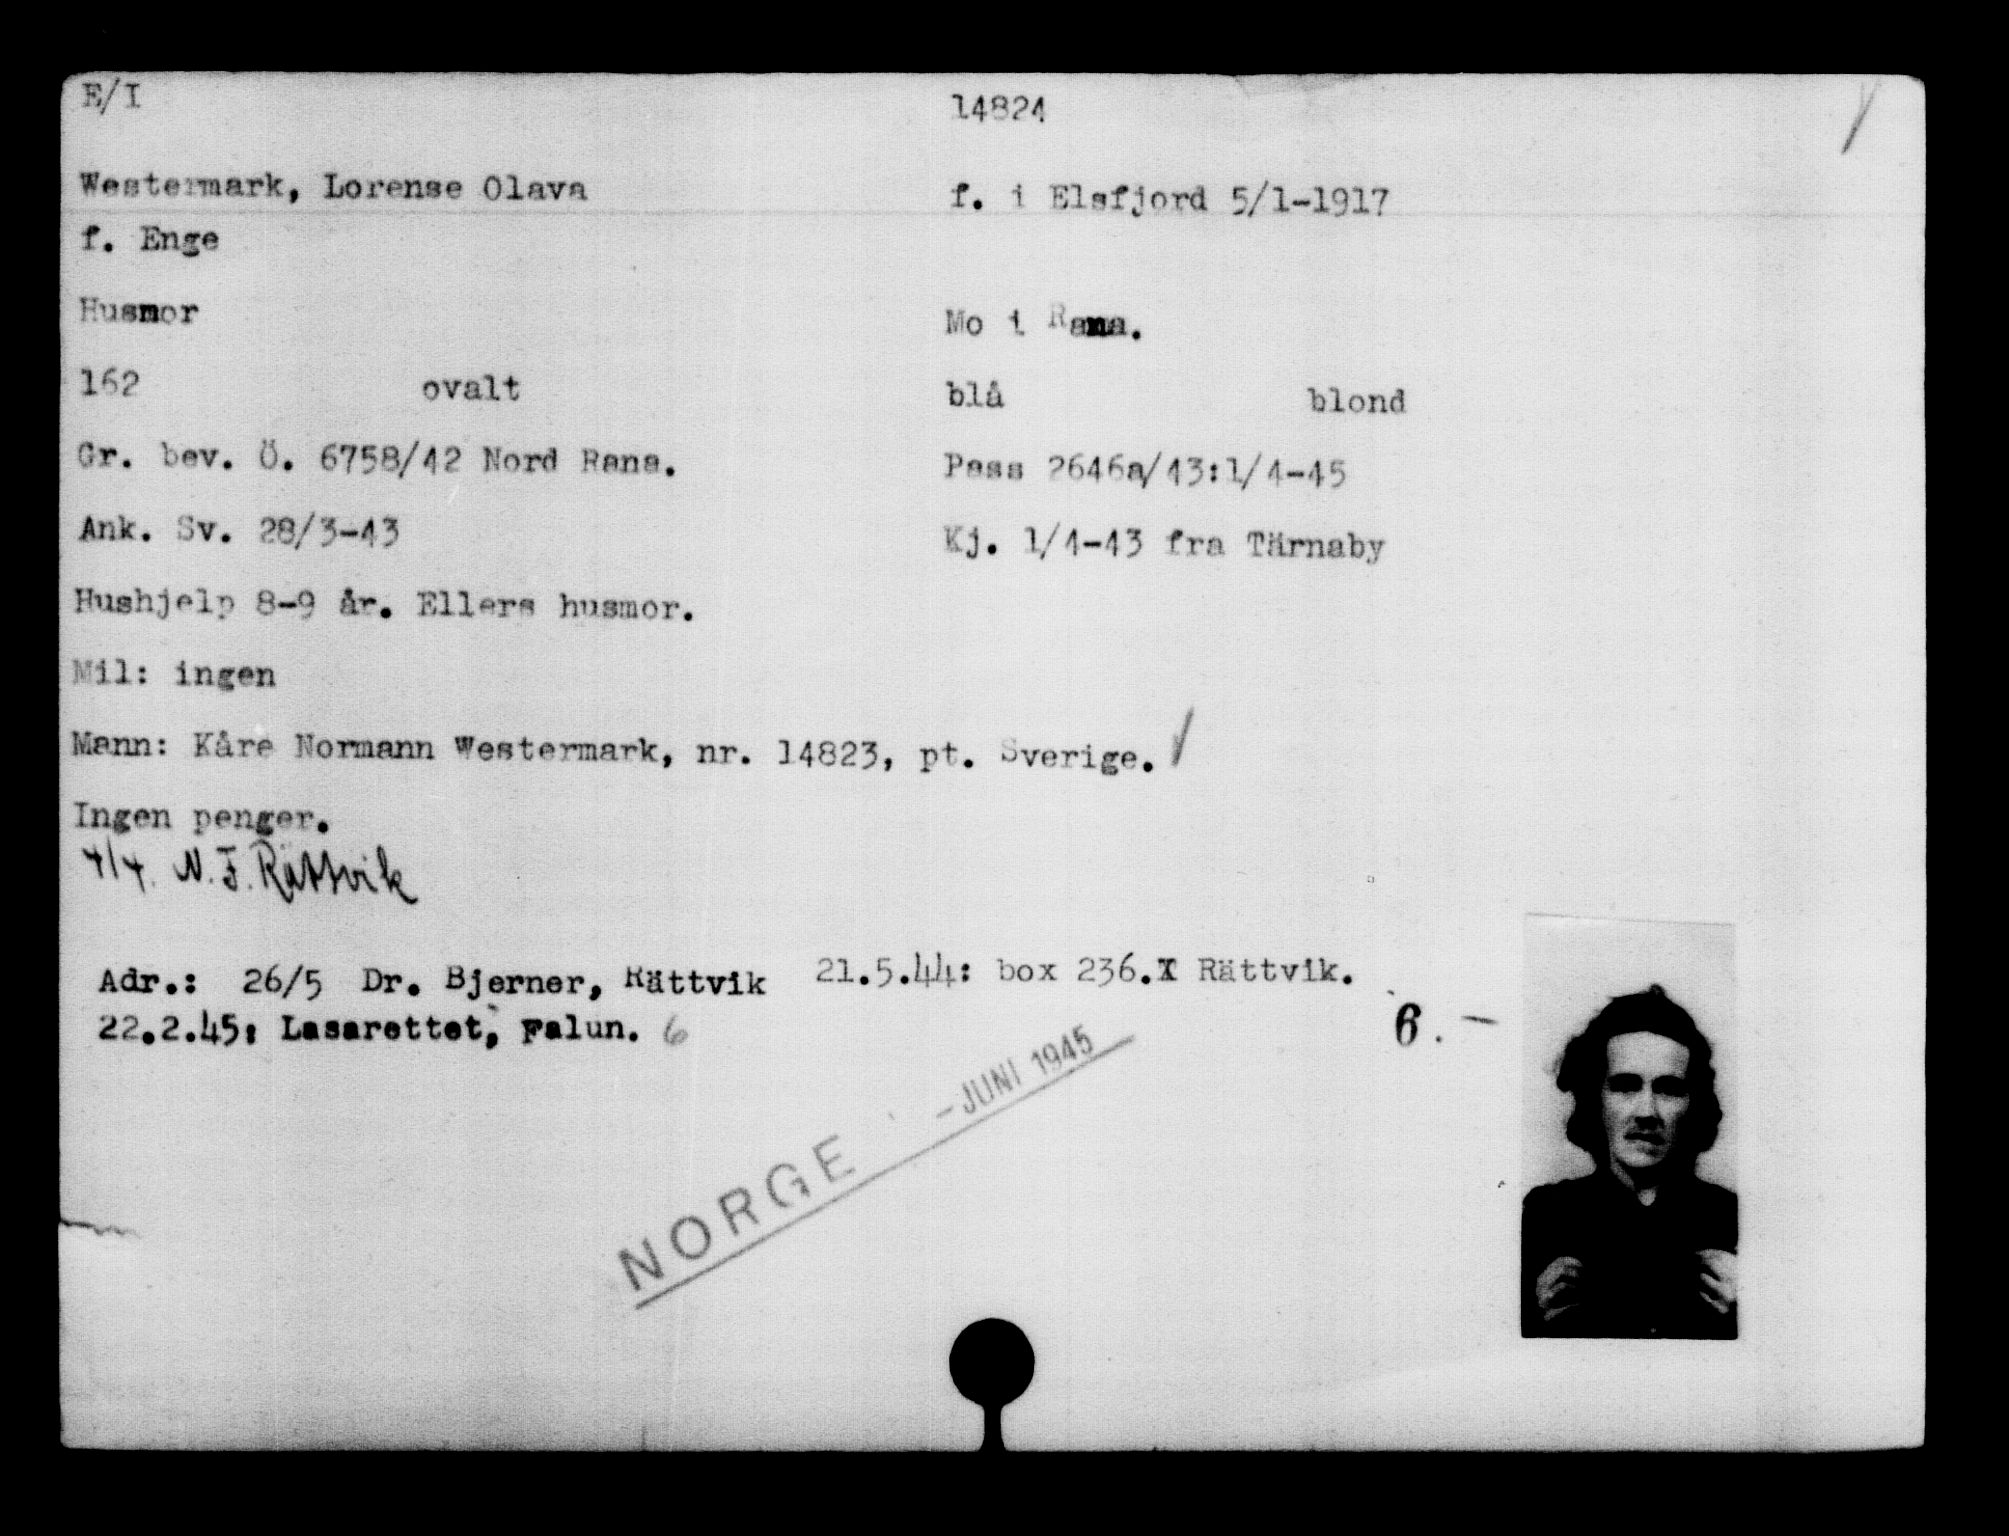 E/I 14824
Westermark, Lorense Olava f. i Elsfjord 5/1-1917
f. Enge
Husmor Mo i Rana.
162 ovalt blå blond
Gr. bev. Ö. 6758/42 Nord Rana. Pass 2646a/43:1/4-45
Ank. Sv. 28/3-43 Kj. 1/4-43 fra Tärnaby
Hushjelp 8-9 år. Ellers husmor.
Mil: ingen
Mann: Kåre Normann Westermark, nr. 14823, pt. Sverige.
Ingen penger.
4/4. N.F. Rättvik
Adr.: 26/5 Dr. Bjerner, Rättvik 21.5.44: box 236.X Rättvik.
22.2.45: Lasarettet, Falun. 6
6. –
NORGE -JUNI 1945